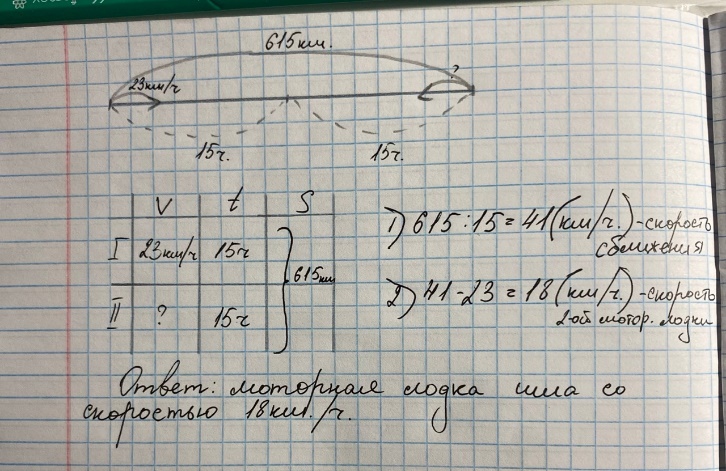 615км.
23км/ч
?
15ч.
15ч.
V t S
I 23км/ч 15ч
615км
II ? 15ч
1) 615:15=41(км/ч.)-скорость
сближения
2) 41-23=18(км/ч.)-скорость
2-ой мотор. лодки
Ответ: моторная лодка шла со
скоростью 18км./ч.